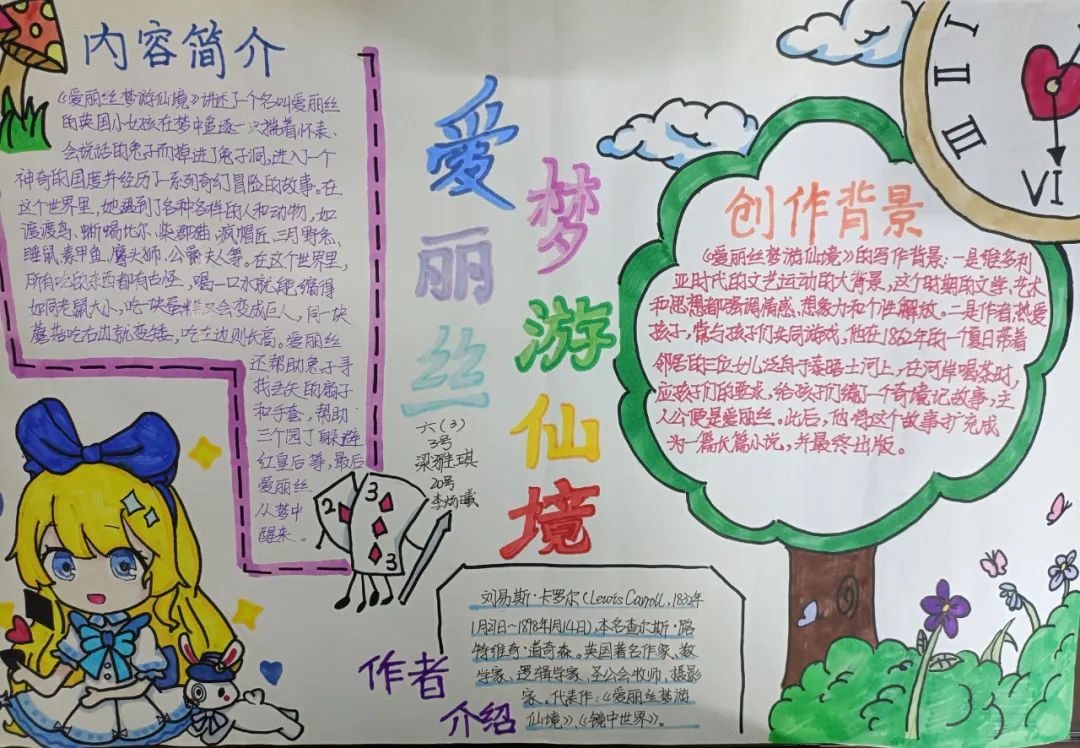 内容简介
《爱丽丝梦游仙境》讲述了一个名叫爱丽丝
的英国小女孩在梦中追逐一只揣着怀表、
会说话的兔子而掉进了兔子洞,进入一个
神奇的国度并经历了一系列奇幻冒险的故事。在
这个世界里,她遇到了各种各样的人和动物,如
渡渡鸟、蜥蜴比尔、柴郡猫、疯帽匠、三月野兔、
睡鼠、素甲鱼、鹰头狮、公爵夫人等。在这个世界里,
所有吃的东西都有古怪,喝一口水就能缩得
如同老鼠大小,吃一块蛋糕又会变成巨人,同一块
蘑菇吃右边就变矮,吃左边则长高。爱丽丝
还帮助兔子寻
找丢失的扇子
和手套,帮助
三个园丁躲避
红皇后等,最后
爱丽丝
从梦中
醒来。
爱丽丝
梦游仙境
六(3)
3号
梁雅琪
20号
李炀曦
2
3
3
创作背景
《爱丽丝梦游仙境》的写作背景:一是维多利
亚时代的文艺运动的大背景,这个时期的文学、艺术
和思想都强调情感、想象力和个性解放。二是作者热爱
孩子,常与孩子们共同游戏,他在1862年的一个夏日带着
邻居的三位女儿泛舟于泰晤士河上,在河岸喝茶时,
应孩子们的要求,给孩子们编了一个奇境记故事,主
人公便是爱丽丝。此后,他将这个故事扩充成
为一篇长篇小说,并最终出版。
I
II
III
VI
作者
介绍
刘易斯·卡罗尔(Lewis Carroll,1832年
1月27日~1898年1月14日),本名查尔斯·路
特维奇·道奇森。英国著名作家、数
学家、逻辑学家、圣公会牧师、摄影
家。代表作:《爱丽丝梦游
仙境》、《镜中世界》。